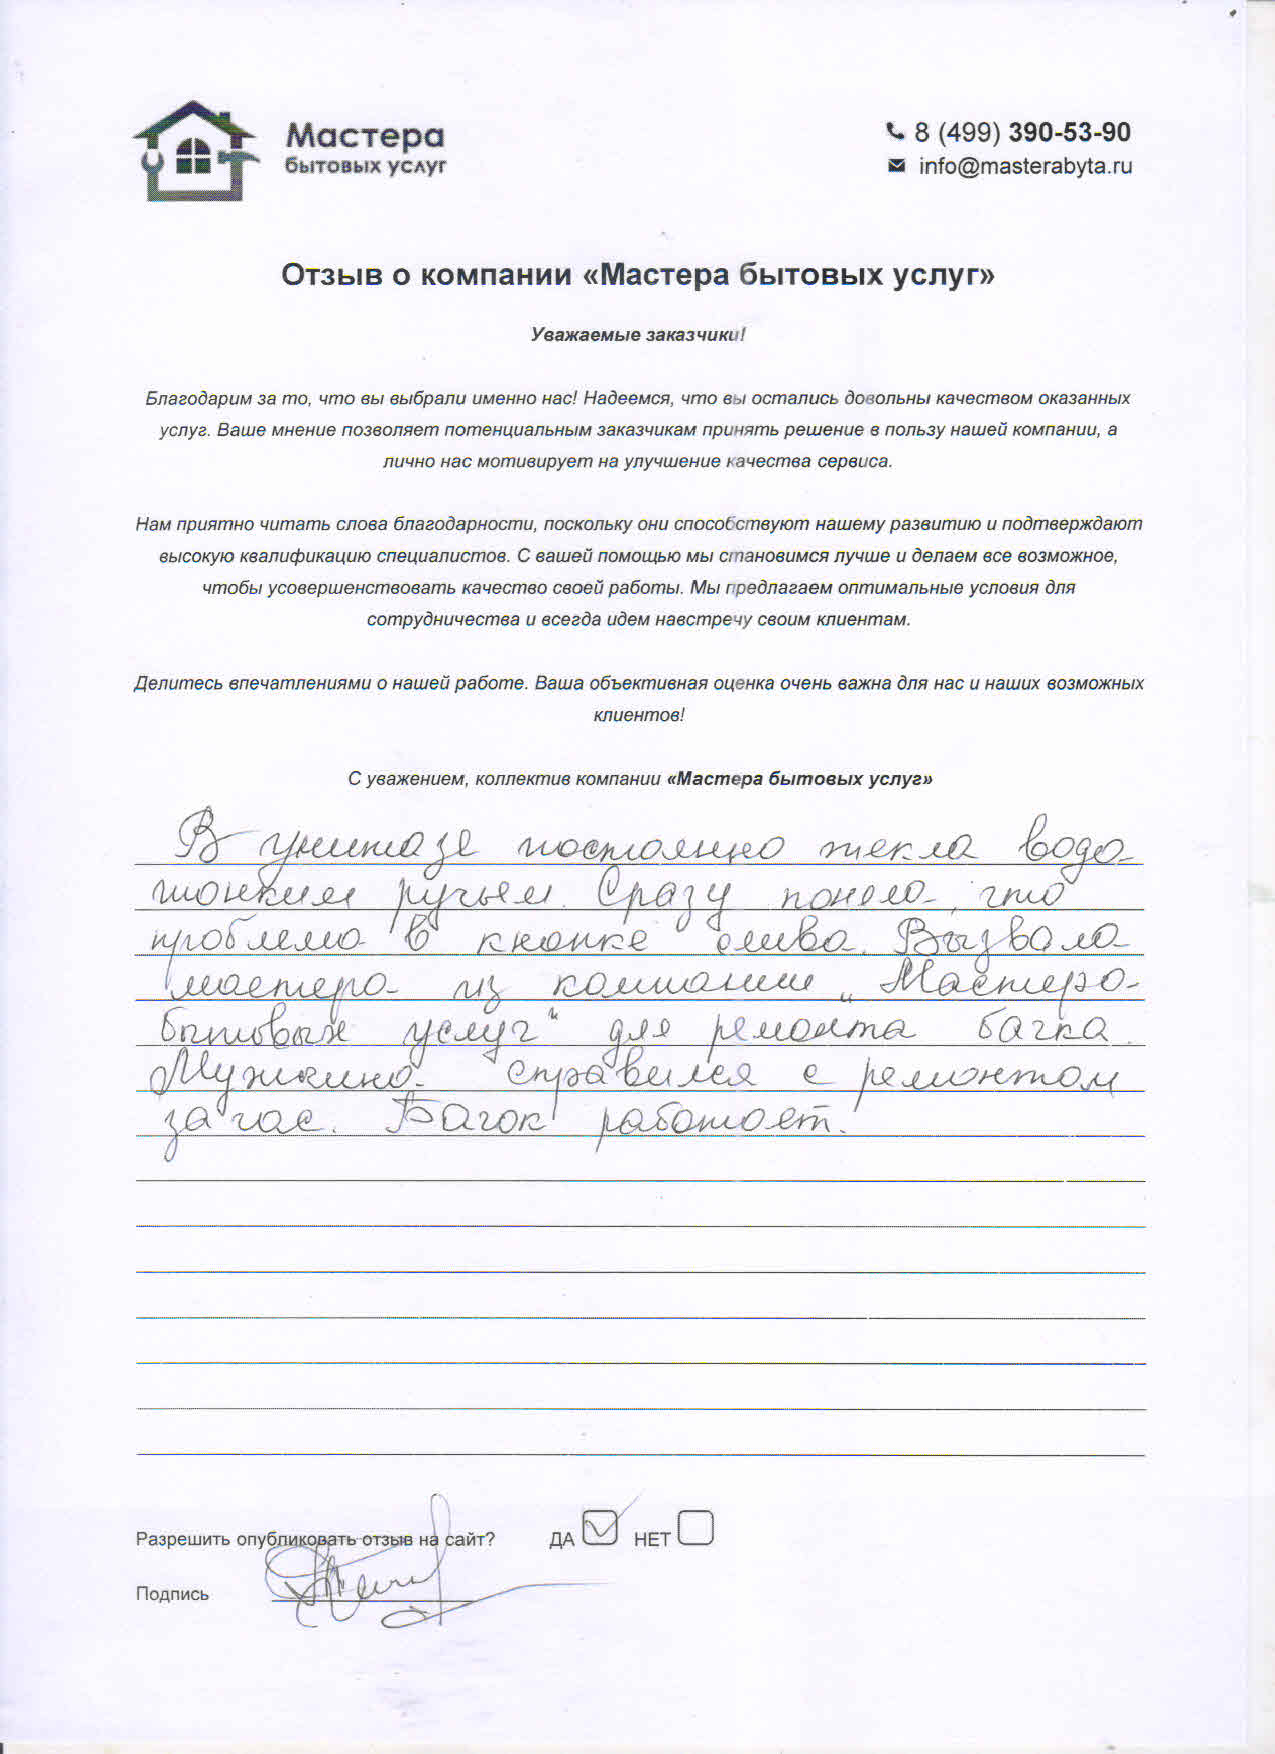 Мастера
бытовых услуг
8 (499) 390-53-90
info@masterabyta.ru
Отзыв о компании «Мастера бытовых услуг»
Уважаемые заказчики!
Благодарим за то, что вы выбрали именно нас! Надеемся, что вы остались довольны качеством оказанных
услуг. Ваше мнение позволяет потенциальным заказчикам принять решение в пользу нашей компании, а
лично нас мотивирует на улучшение качества сервиса.
Нам приятно читать слова благодарности, поскольку они способствуют нашему развитию и подтверждают
высокую квалификацию специалистов. С вашей помощью мы становимся лучше и делаем все возможное,
чтобы усовершенствовать качество своей работы. Мы предлагаем оптимальные условия для
сотрудничества и всегда идем навстречу своим клиентам.
Делитесь впечатлениями о нашей работе. Ваша объективная оценка очень важна для нас и наших возможных
клиентов!
С уважением, коллектив компании «Мастера бытовых услуг»
В унитазе постоянно текла вода
тонким ручьем. Сразу поняла, что
проблема в кнопке слива. Вызвала
мастера из компании „Мастера
бытовых услуг" для ремонта бачка.
Мужчина справился с ремонтом
за час. Бачок работает.
Разрешить опубликовать отзыв на сайт? ДА НЕТ
Подпись